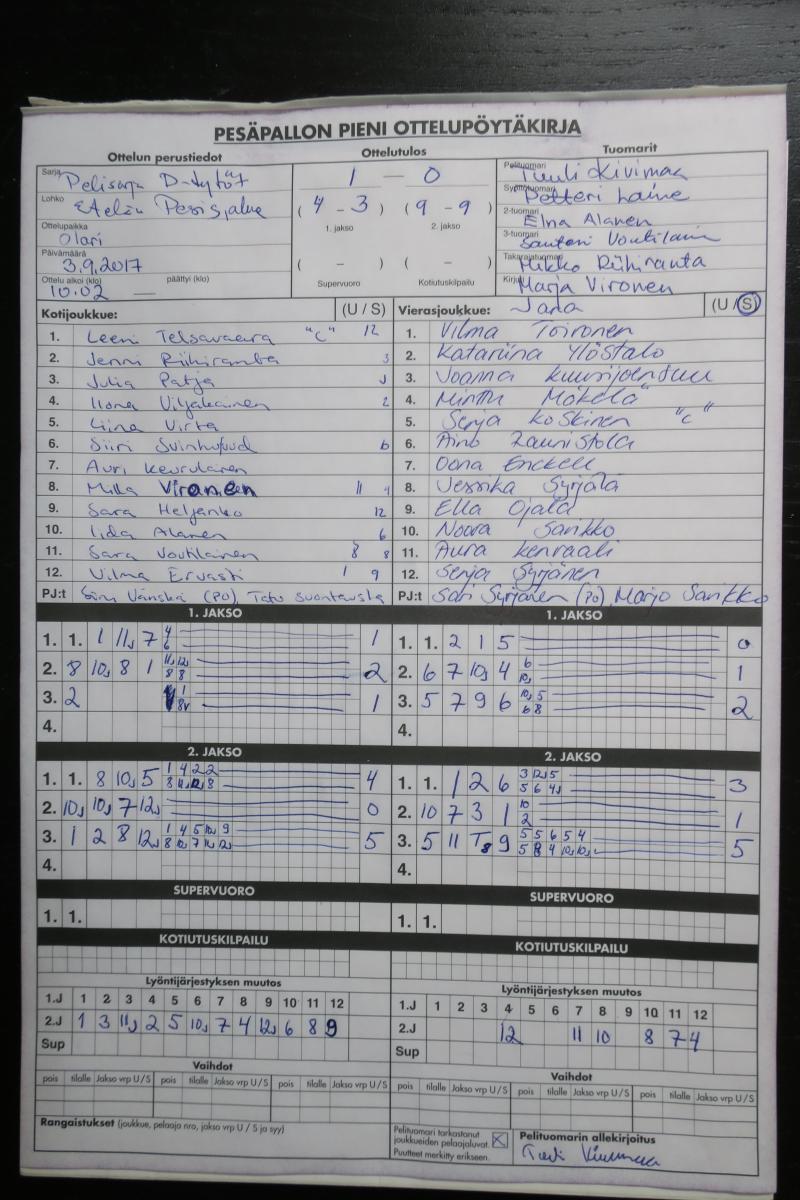 PESÄPALLON PIENI OTTELUPÖYTÄKIRJA
Ottelun perustiedot Ottelutulos Tuomarit
Sarja Pelisarja D-tytöt
1 — 0
Pelituomari Tuuli Kivimaa
Lohko Etelän Pesisjalue
( 4 - 3 ) ( 9 - 9 )
1. jakso 2. jakso
Syöttötuomari Petteri Laine
Ottelupaikka Olari
2-tuomari Elna Alanen
Päivämäärä 3.9.2017
3-tuomari Santeri Voutilainen
Ottelu alkoi (klo) 10.02 päättyi (klo) —
( - ) ( - )
Supervuoro Kotiutuskilpailu
Takarajatuomari Mikko Riihiranta
Kirjuri Marja Vironen
Jana
Kotijoukkue: (U / S)
Vierasjoukkue: (U / S)
1. Leeni Telsavaara "C" 12
2. Jenni Riihiranta 3
3. Julia Patja
4. Ilona Viljakainen 2
5. Liina Virta
6. Siiri Svinhufvud 6
7. Auri Keurulainen
8. Milla Viranen 11 4
9. Sara Heljanko 12
10. Iida Alanen 6
11. Sara Voutilainen 8 8
12. Vilma Ervasti 1 9
PJ:t Siru Vänskä (PO) Tatu Suontausta
1. Vilma Toironen
2. Katariina Ylöstalo
3. Joanna Kuusijoensuu
4. Minttu Mäkelä
5. Senja Koskinen "C"
6. Aino Launistola
7. Oona Enckell
8. Jessika Syrjälä
9. Ella Ojala
10. Noora Sarikko
11. Aura Kenraali
12. Senja Syrjänen
PJ:t Sari Syrjänen (PO), Marjo Sarikko
1. JAKSO
1. 1. 1 11J 7 4 6 1
2. 8 10J 8 1 11J 12J 8 8 2
3. 2 1 8V 1
4.
1. JAKSO
1. 1. 2 1 5 0
2. 6 7 10J 4 6 10J 1
3. 5 7 9 6 10J 5 6 8 2
4.
2. JAKSO
1. 1. 8 10J 5 1 4 2 2 4
2. 10J 10J 7 12J 0
3. 1 2 8 12J 1 4 5 10J 9 8 10J 7 11J 12J 5
4.
2. JAKSO
1. 1. 1 2 6 3 12J 5 5 6 4J 3
2. 10 7 3 1 10 2 1
3. 5 11 T8 9 5 5 6 5 4 5 8 4 10J 10J 5
4.
SUPERVUORO
1. 1.
SUPERVUORO
1. 1.
KOTIUTUSKILPAILU
KOTIUTUSKILPAILU
Lyöntijärjestyksen muutos
1.J 1 2 3 4 5 6 7 8 9 10 11 12
2.J 1 3 11J 2 5 10J 7 4 12J 6 8 9
Sup
Lyöntijärjestyksen muutos
1.J 1 2 3 4 5 6 7 8 9 10 11 12
2.J 12 11 10 8 7 4
Sup
Vaihdot
pois tilalle Jakso vrp U/S pois tilalle Jakso vrp U/S pois tilalle Jakso vrp U/S
Vaihdot
pois tilalle Jakso vrp U/S pois tilalle Jakso vrp U/S pois tilalle Jakso vrp U/S
Rangaistukset (joukkue, pelaaja nro, jakso vrp U / S ja syy)
Pelituomari tarkastanut
joukkueiden pelaajaluvat.
Puutteet merkitty erikseen.
Pelituomarin allekirjoitus